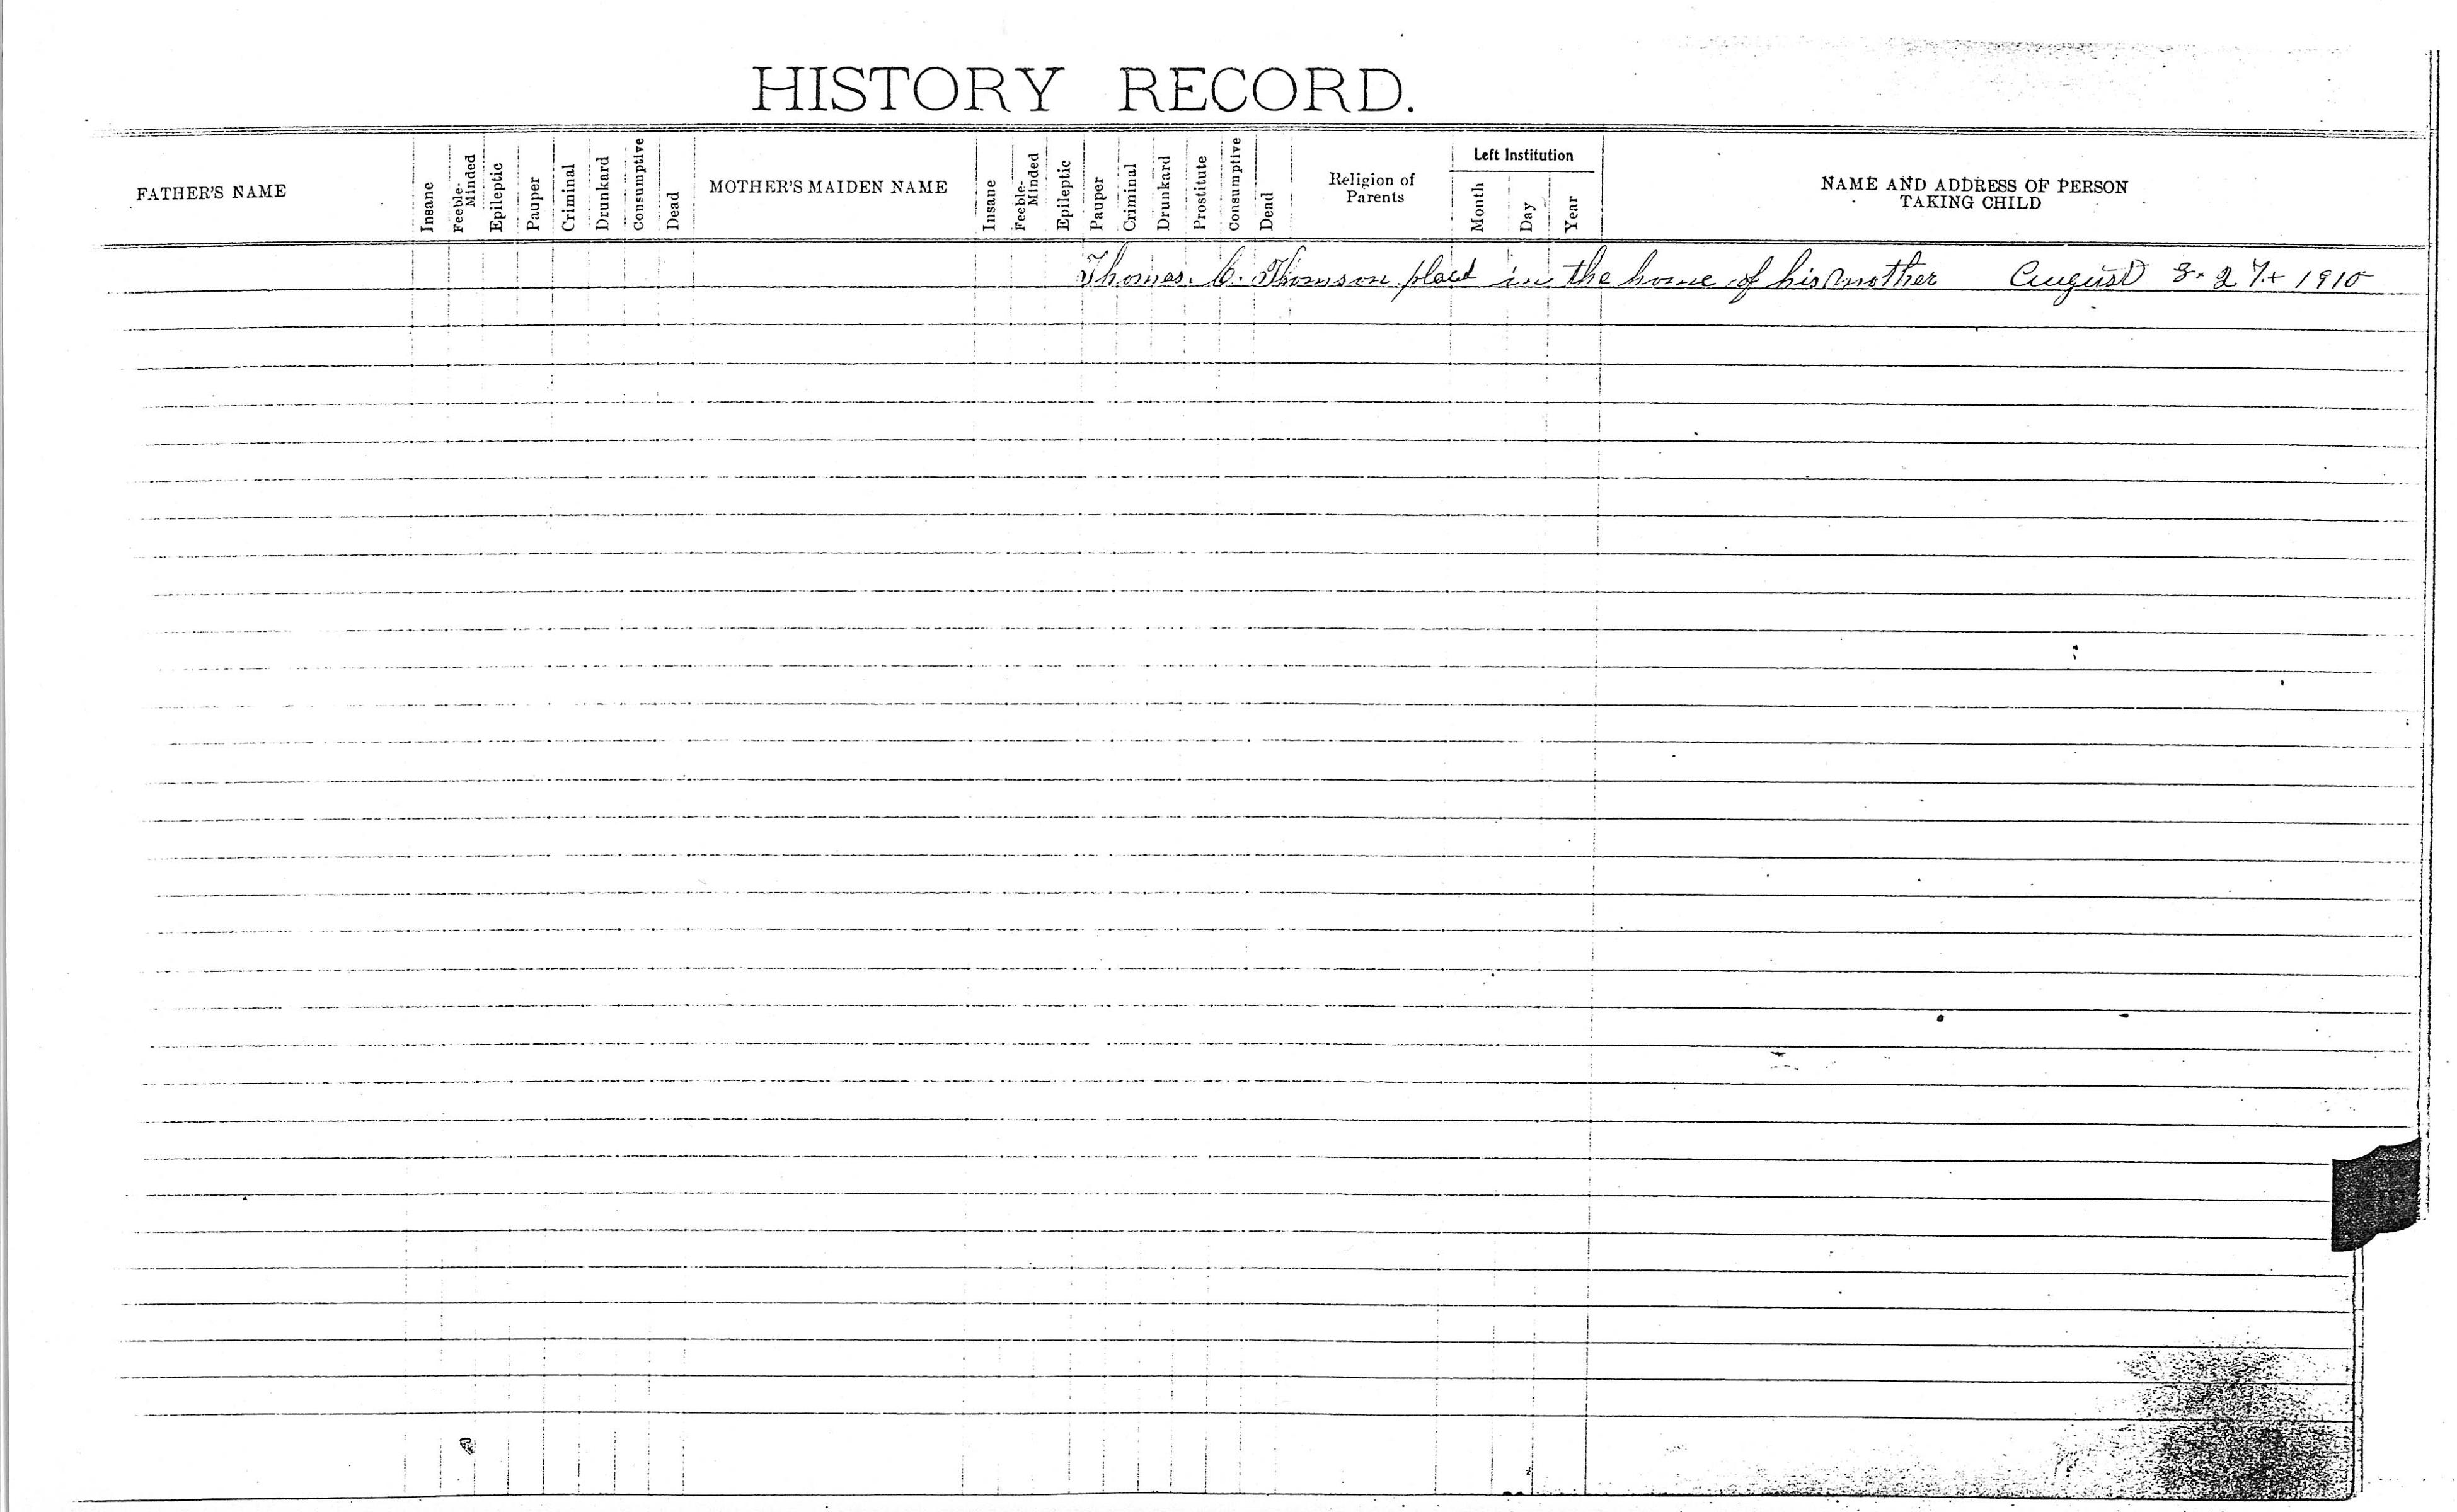 HISTORY RECORD.
FATHER'S NAME
Insane
Feeble-Minded
Epileptic
Pauper
Criminal
Drunkard
Consumptive
Dead
MOTHER'S MAIDEN NAME
Insane
Feeble-Minded
Epileptic
Pauper
Criminal
Drunkard
Prostitute
Consumptive
Dead
Religion of
Parents
Left Institution
Month
Day
Year
NAME AND ADDRESS OF PERSON
TAKING CHILD
Thomas. C. Thomson placed in the home of his Mother August 1910